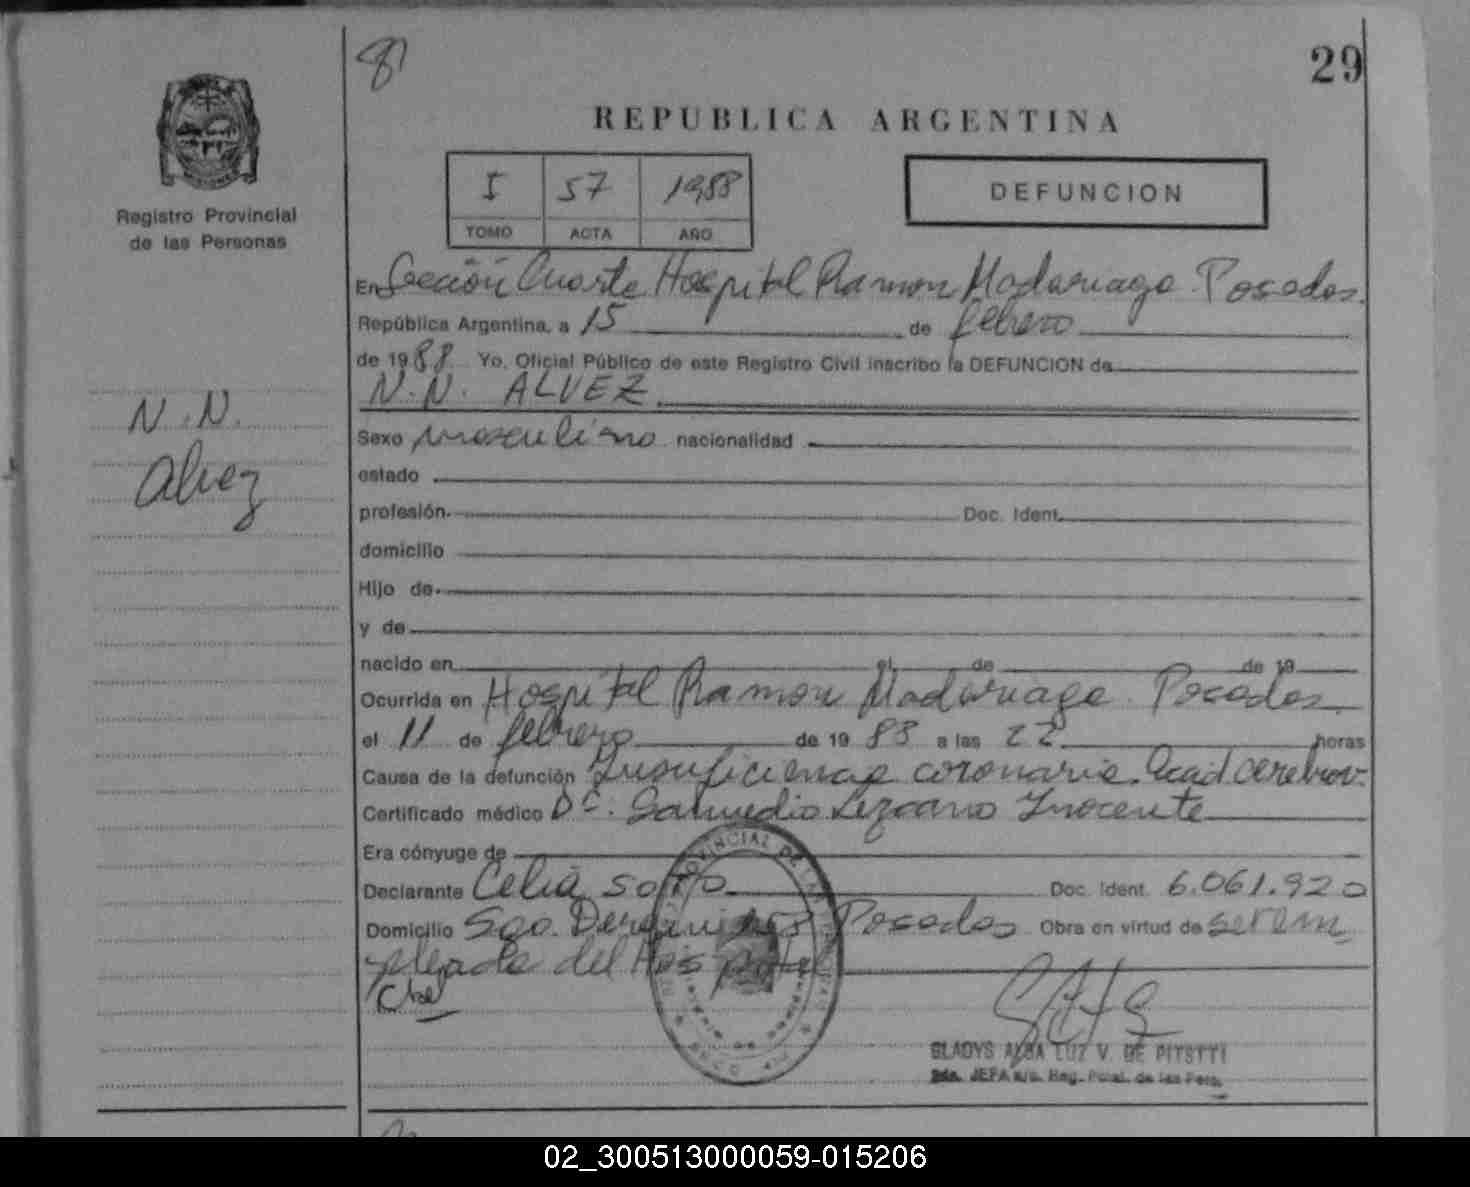 29
REPUBLICA ARGENTINA
I 57 1988
TOMO ACTA AÑO
DEFUNCION
Registro Provincial
de las Personas
En Sección Cuarta Hospital Ramon Madariaga. Posadas.
República Argentina, a 15 de febrero
de 1988. Yo, Oficial Público de este Registro Civil inscribo la DEFUNCION de
N.N. ALVEZ.
N.N.
Alvez
Sexo masculino nacionalidad
estado
profesión Doc. Ident.
domicilio
Hijo de
y de
nacido en el de de 19
Ocurrida en Hospital Ramon Madariaga. Posadas.
el 11 de febrero de 1988 a las 22 horas
Causa de la defunción Insuficiencia coronaria. Acid. cerebrov.
Certificado médico Lezcano Inocente
Era cónyuge de
Declarante Celia Doc. Ident. 6.061.920
Domicilio Sgo. Posadas Obra en virtud de ser em
pleada del Hospital
GLADYS ALBA LUZ V. DE PITSTTI
JEFA Reg. Pcial. de las Pers.
02_300513000059-015206